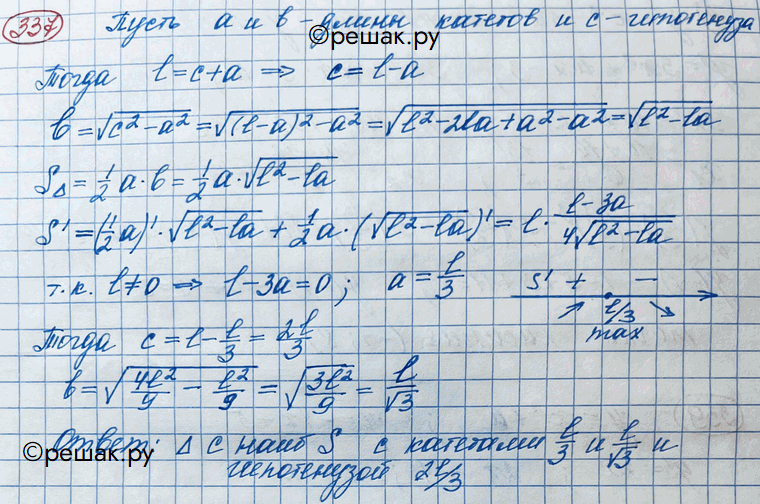 337 Пусть a и b - длины катетов и c - гипотенуза
©решак.ру
Тогда l = c + a ⇒ c = l - a
b = √(c² - a²) = √((l - a)² - a²) = √(l² - 2la + a² - a²) = √(l² - la
S△ = 1/2 a · b = 1/2 a · √(l² - la)
S' = (1/2 a)' · √(l² - la) + 1/2 a · (√(l² - la))' = l · (l - 3a)/(4√(l² - la))
т.к. l ≠ 0 ⇒ l - 3a = 0; a = l/3 S' + -
l/3
max
Тогда c = l - l/3 = 2l/3
b = √(4l²/9 - l²/9) = √(3l²/9) = l/√3
Ответ: △ с наиб S с катетами l/3 и l/√3 и
©решак.ру
гипотенузой 2l/3